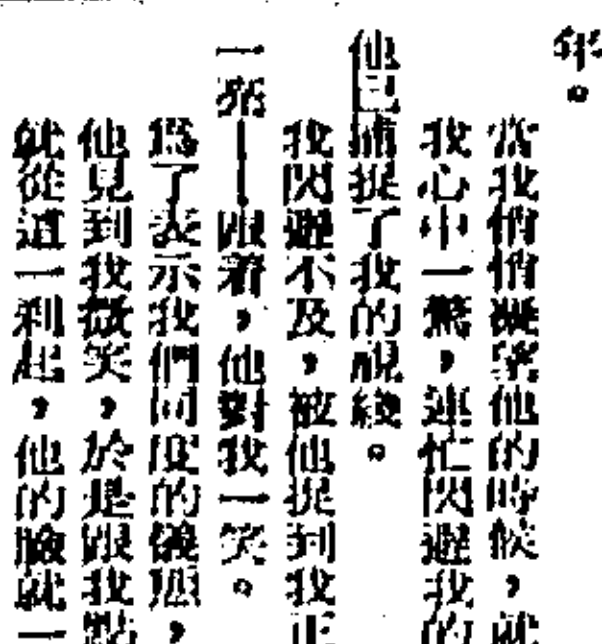 年。
當我悄悄凝望他的時候，就
我心中一驚，連忙閃避我的
他已捕捉了我的視綫。
我閃避不及，被他捉到我正
一亮——跟着，他對我一笑。
爲了表示我們同度的儀態，
他見到我微笑，於是跟我點
就從這一刹起，他的臉就一